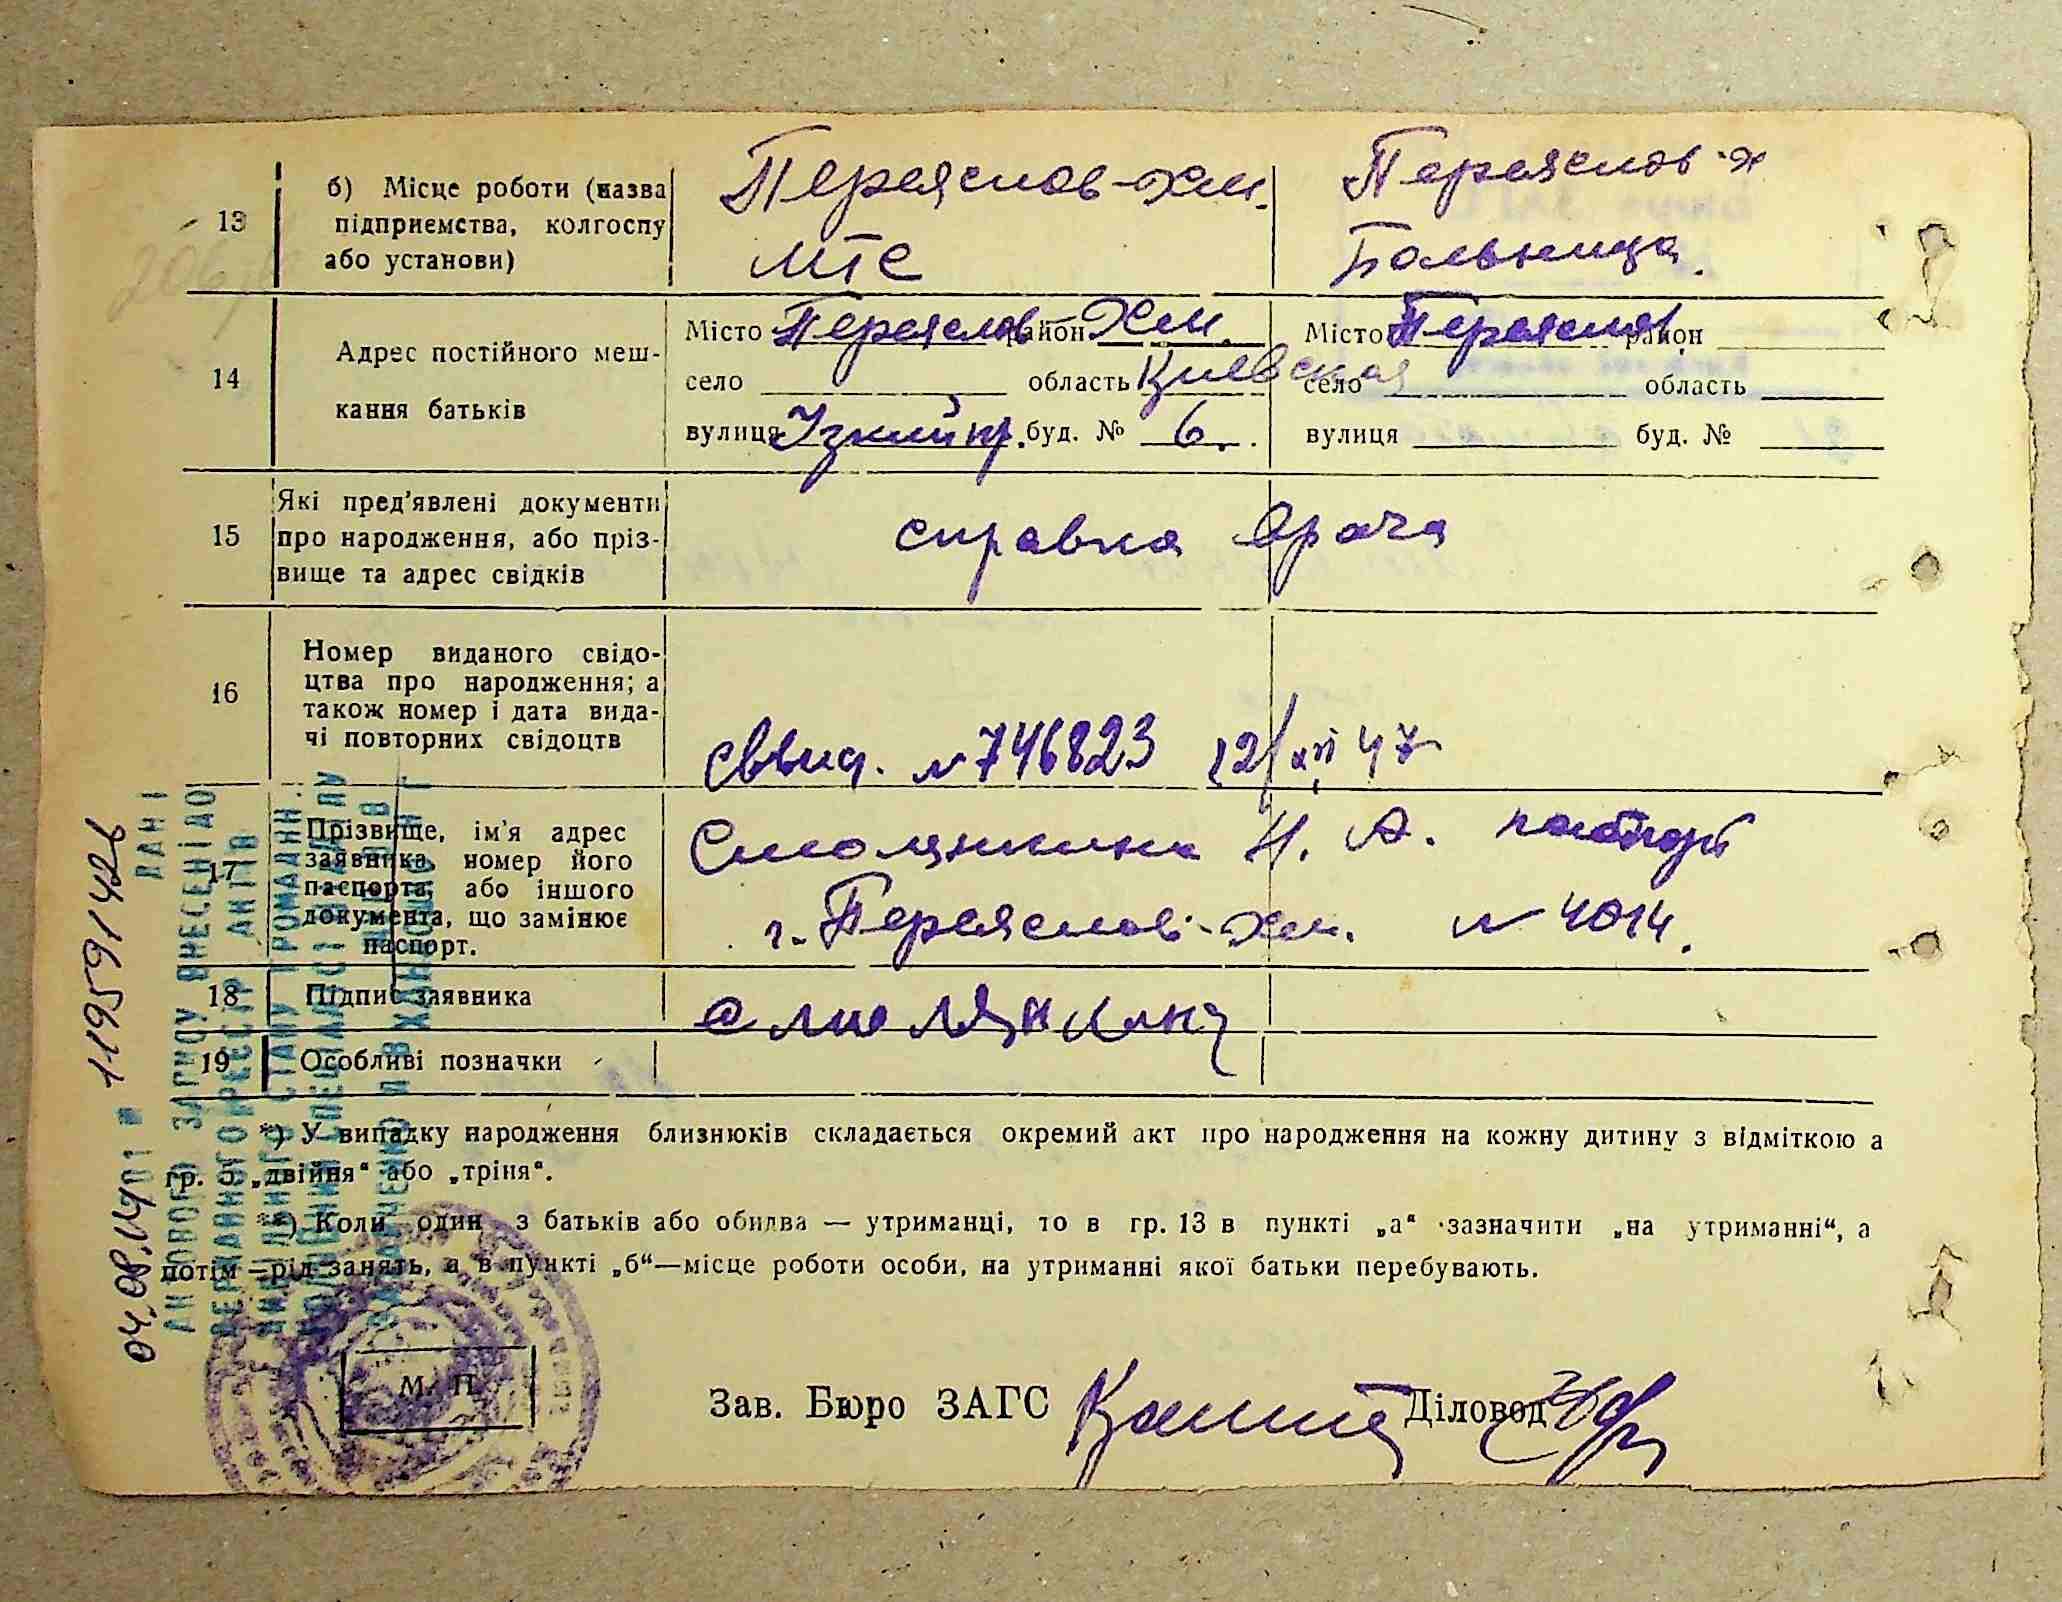 13
б) Місце роботи (назва
підприємства, колгоспу
або установи)
Переяслов-Хм.
МТС
Переяслов-Х
Больница.
14
Адрес постійного меш-
кання батьків
Місто Переяслов район Хм.
село область Киевская
вулиця Узкий пр. буд. № 6.
Місто Переяслов район
село область
вулиця буд. №
15
Які пред'явлені документи
про народження, або пріз-
вище та адрес свідків
справка врача
16
Номер виданого свідо-
цтва про народження; а
також номер і дата вида-
чі повторних свідоцтв
№ 746823 12/XII 47
17
Прізвище, ім'я адрес
заявника, номер його
паспорта, або іншого
документа, що замінює
паспорт.
Смолянкина Н. А. паспорт
г. Переяслов-Хм. № 4014.
18
Підпис заявника
Смолянкина
19
Особливі позначки
*) У випадку народження близнюків складається окремий акт про народження на кожну дитину з відміткою а
гр. 5 „двійня“ або „тріня“.
**) Коли один з батьків або обидва — утриманці, то в гр. 13 в пункті „а“ зазначити „на утриманні“, а
потім—рід занять, а в пункті „б“—місце роботи особи, на утриманні якої батьки перебувають.
М. П.
Зав. Бюро ЗАГС
Діловод
ДАНІ
АКТОВОГО ЗАПИСУ ВНЕСЕНІ ДО
ДЕРЖАВНОГО РЕЄСТР АКТІВ
ЦИВІЛЬНОГО СТАНУ ГРОМАДЯН.
04.08.14 119591426